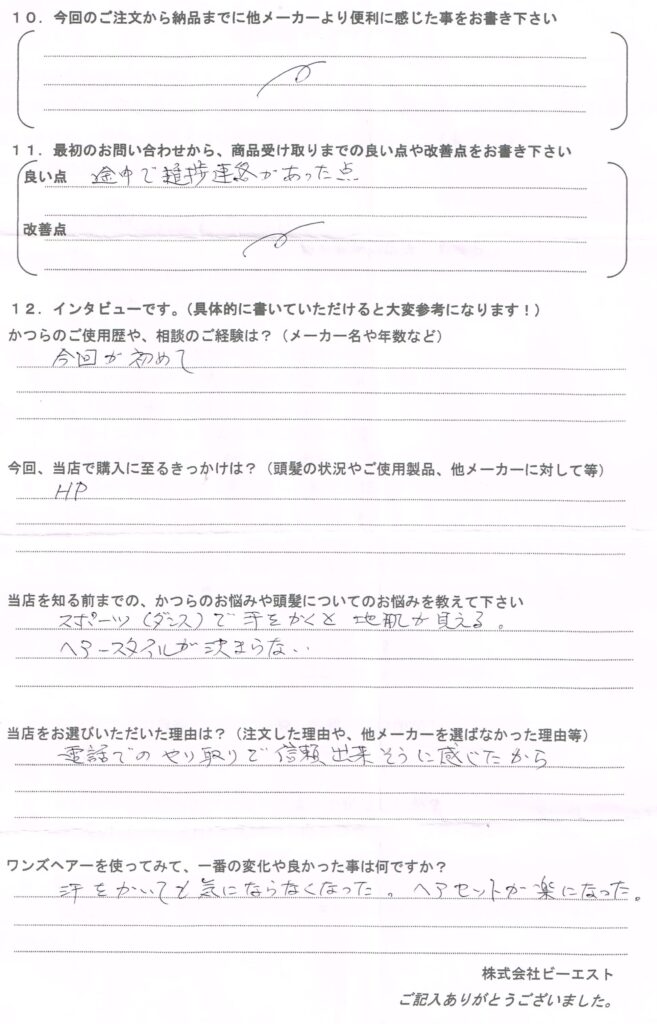 １０．今回のご注文から納品までに他メーカーより便利に感じた事をお書き下さい
１１．最初のお問い合わせから、商品受け取りまでの良い点や改善点をお書き下さい
良い点 途中で進捗連絡があった点
改善点
１２．インタビューです。（具体的に書いていただけると大変参考になります！）
かつらのご使用歴や、相談のご経験は？（メーカー名や年数など）
今回が初めて
今回、当店で購入に至るきっかけは？（頭髪の状況やご使用製品、他メーカーに対して等）
HP
当店を知る前までの、かつらのお悩みや頭髪についてのお悩みを教えて下さい
スポーツ（ダンス）で汗をかくと地肌が見える。
ヘアースタイルが決まらない
当店をお選びいただいた理由は？（注文した理由や、他メーカーを選ばなかった理由等）
電話でのやり取りで信頼出来そうに感じたから
ワンズヘアーを使ってみて、一番の変化や良かった事は何ですか？
汗をかいても気にならなくなった。ヘアセットが楽になった。
株式会社ビーエスト
ご記入ありがとうございました。